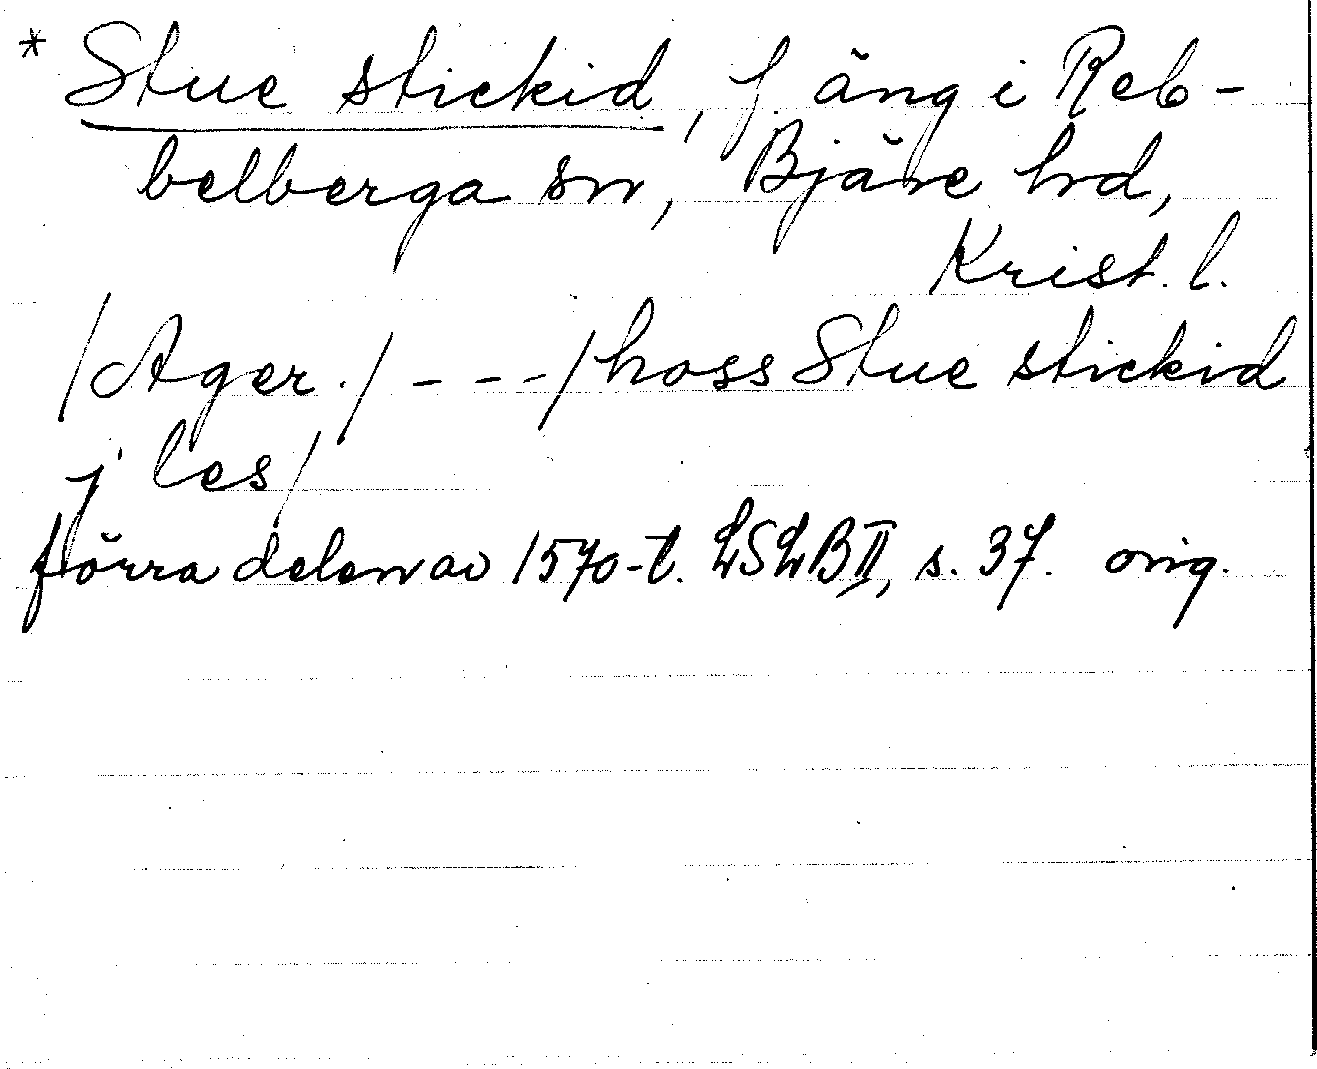 * Stue stickid, f. äng i Reb-
belberga sn, Bjäre hd,
Krist. l.
/Ager./ - - -/hoss Stue stickid
j les/
förra delen av 1570-t. LSLB II, s. 37. orig.